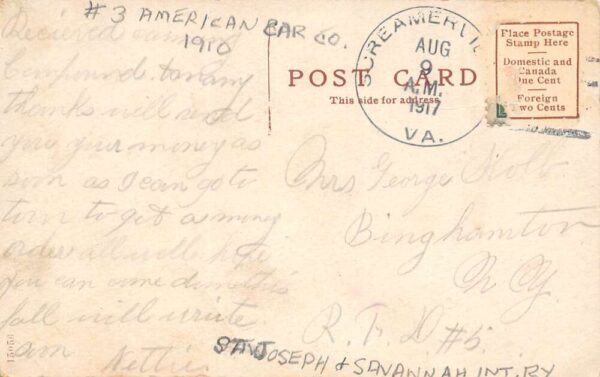 #3 AMERICAN CAR CO.
1910
Recieved canning
Compound. to many
thanks will send
you your money as
soon as I can go to
town to get a money
order all well hope
you can come down this
fall will write
soon Nettie.
SCREAMERVIL
AUG
9
A.M.
1917
VA.
POST CARD
This side for address
Place Postage
Stamp Here
Domestic and
Canada
One Cent
Foreign
Two Cents
Mrs George
Binghamton
N Y.
R. F. D #5.
15056
ST JOSEPH & SAVANNAH INT. RY